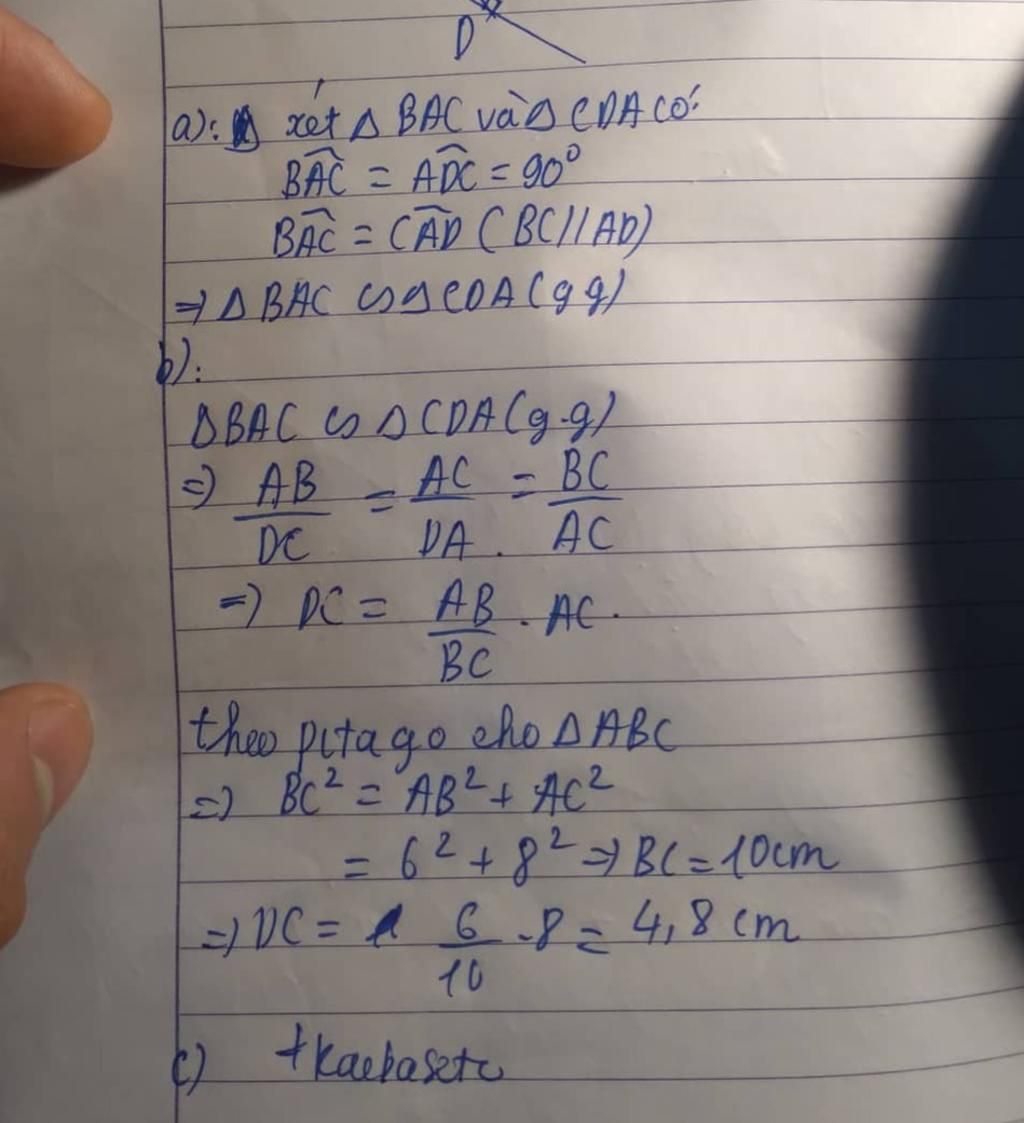 D
a): xét Δ BAC và Δ CDA có:
BAC^ = ADC^ = 90⁰
BAC^ = CAD^ (BC//AD)
⇒ Δ BAC ∽ Δ CDA (g g)
b):
Δ BAC ∽ Δ CDA (g.g)
⇒ AB/DC = AC/DA = BC/AC
⇒ DC = AB/BC . AC.
theo pitago cho Δ ABC
⇒ BC² = AB² + AC²
= 6² + 8² ⇒ BC = 10cm
⇒ DC = 6/10 .8 = 4,8 cm
c)